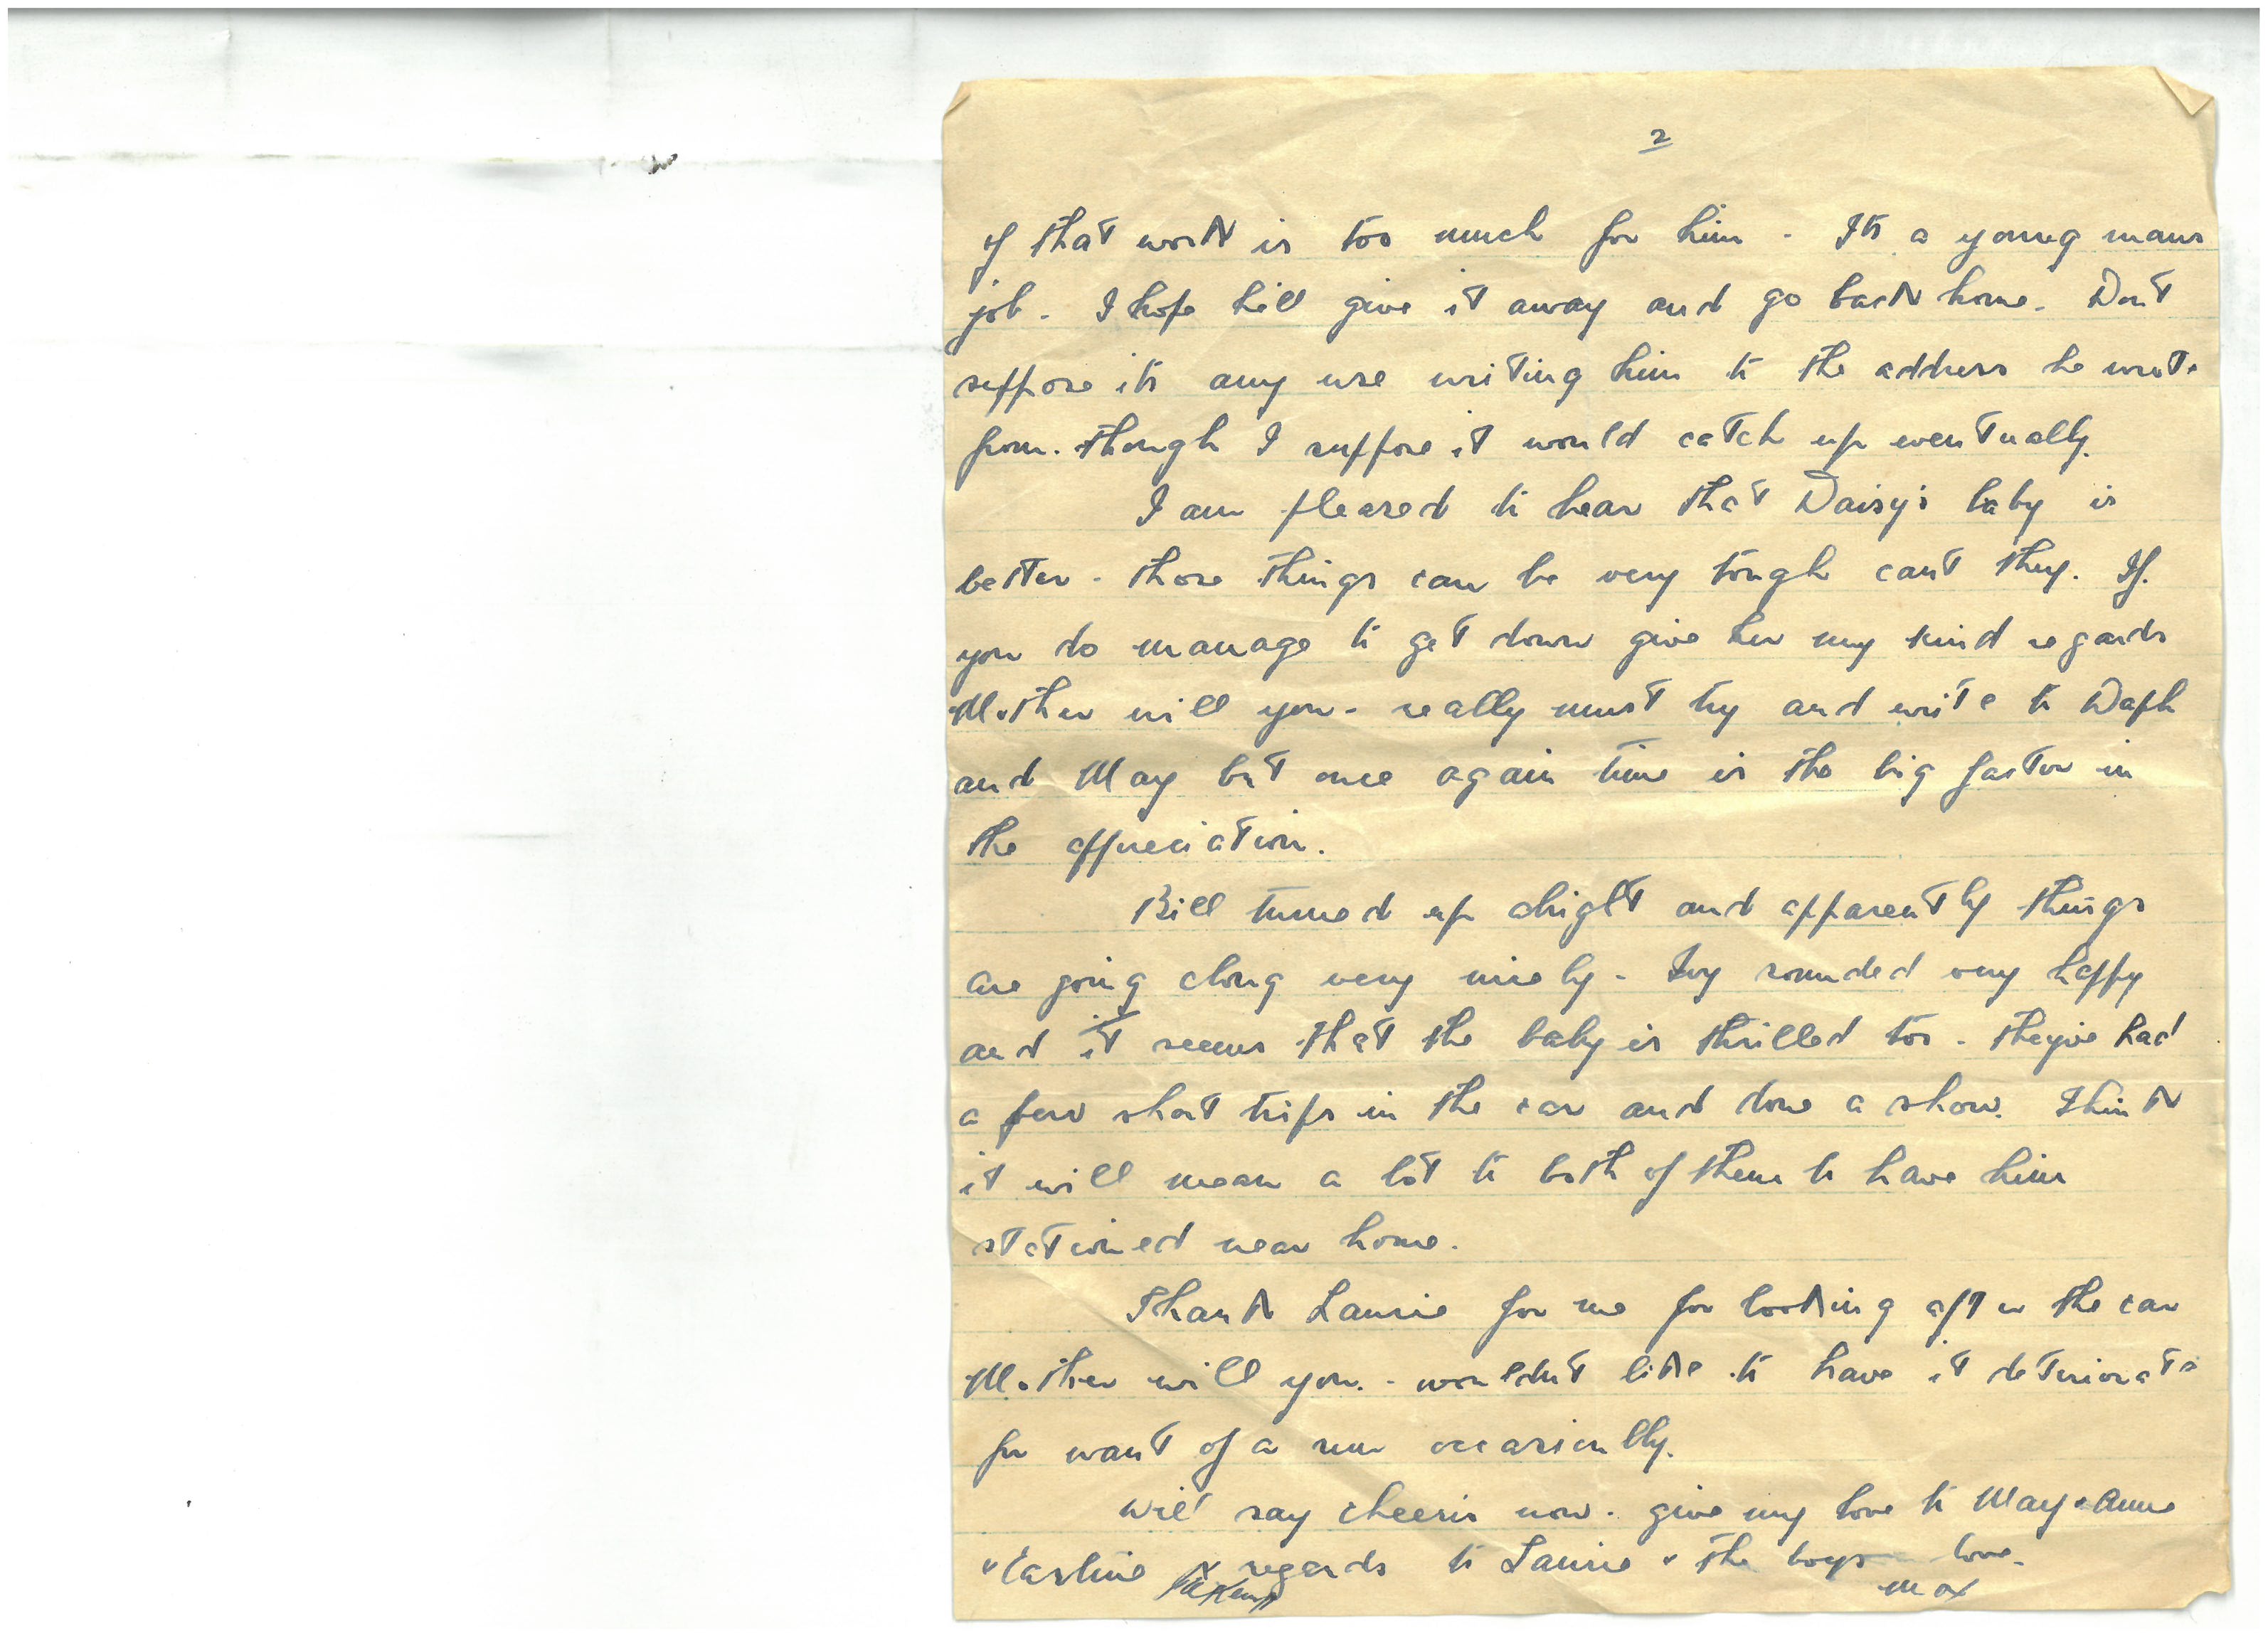 2
if that work is too much for him - Its a young mans
job - I hope he'll give it away and go back home. Dont
suppose its any use writing him to the address he wrote
from. though I suppose it would catch up eventually.
I am pleased to hear that Daisy's baby is
better - those things can be very tough cant they. If
you do manage to get down give her my kind regards
Mother will you - really must try and write to Daph
and May but once again time is the big factor in
the appreciation.
Bill turned up alright and apparently things
are going along very nicely - Ivy sounded very happy
and it seems that the baby is thrilled too - they've had
a few short trips in the car and done a show. Think
it will mean a lot to both of them to have him
stationed near home.
Thank Laurie for me for looking after the car
Mother will you. - wouldn't like to have it deteriorate
for want of a run occasionlly.
Will say cheerio now. give my love to May & Anne
& regards to Laurie & the boys love.
Max